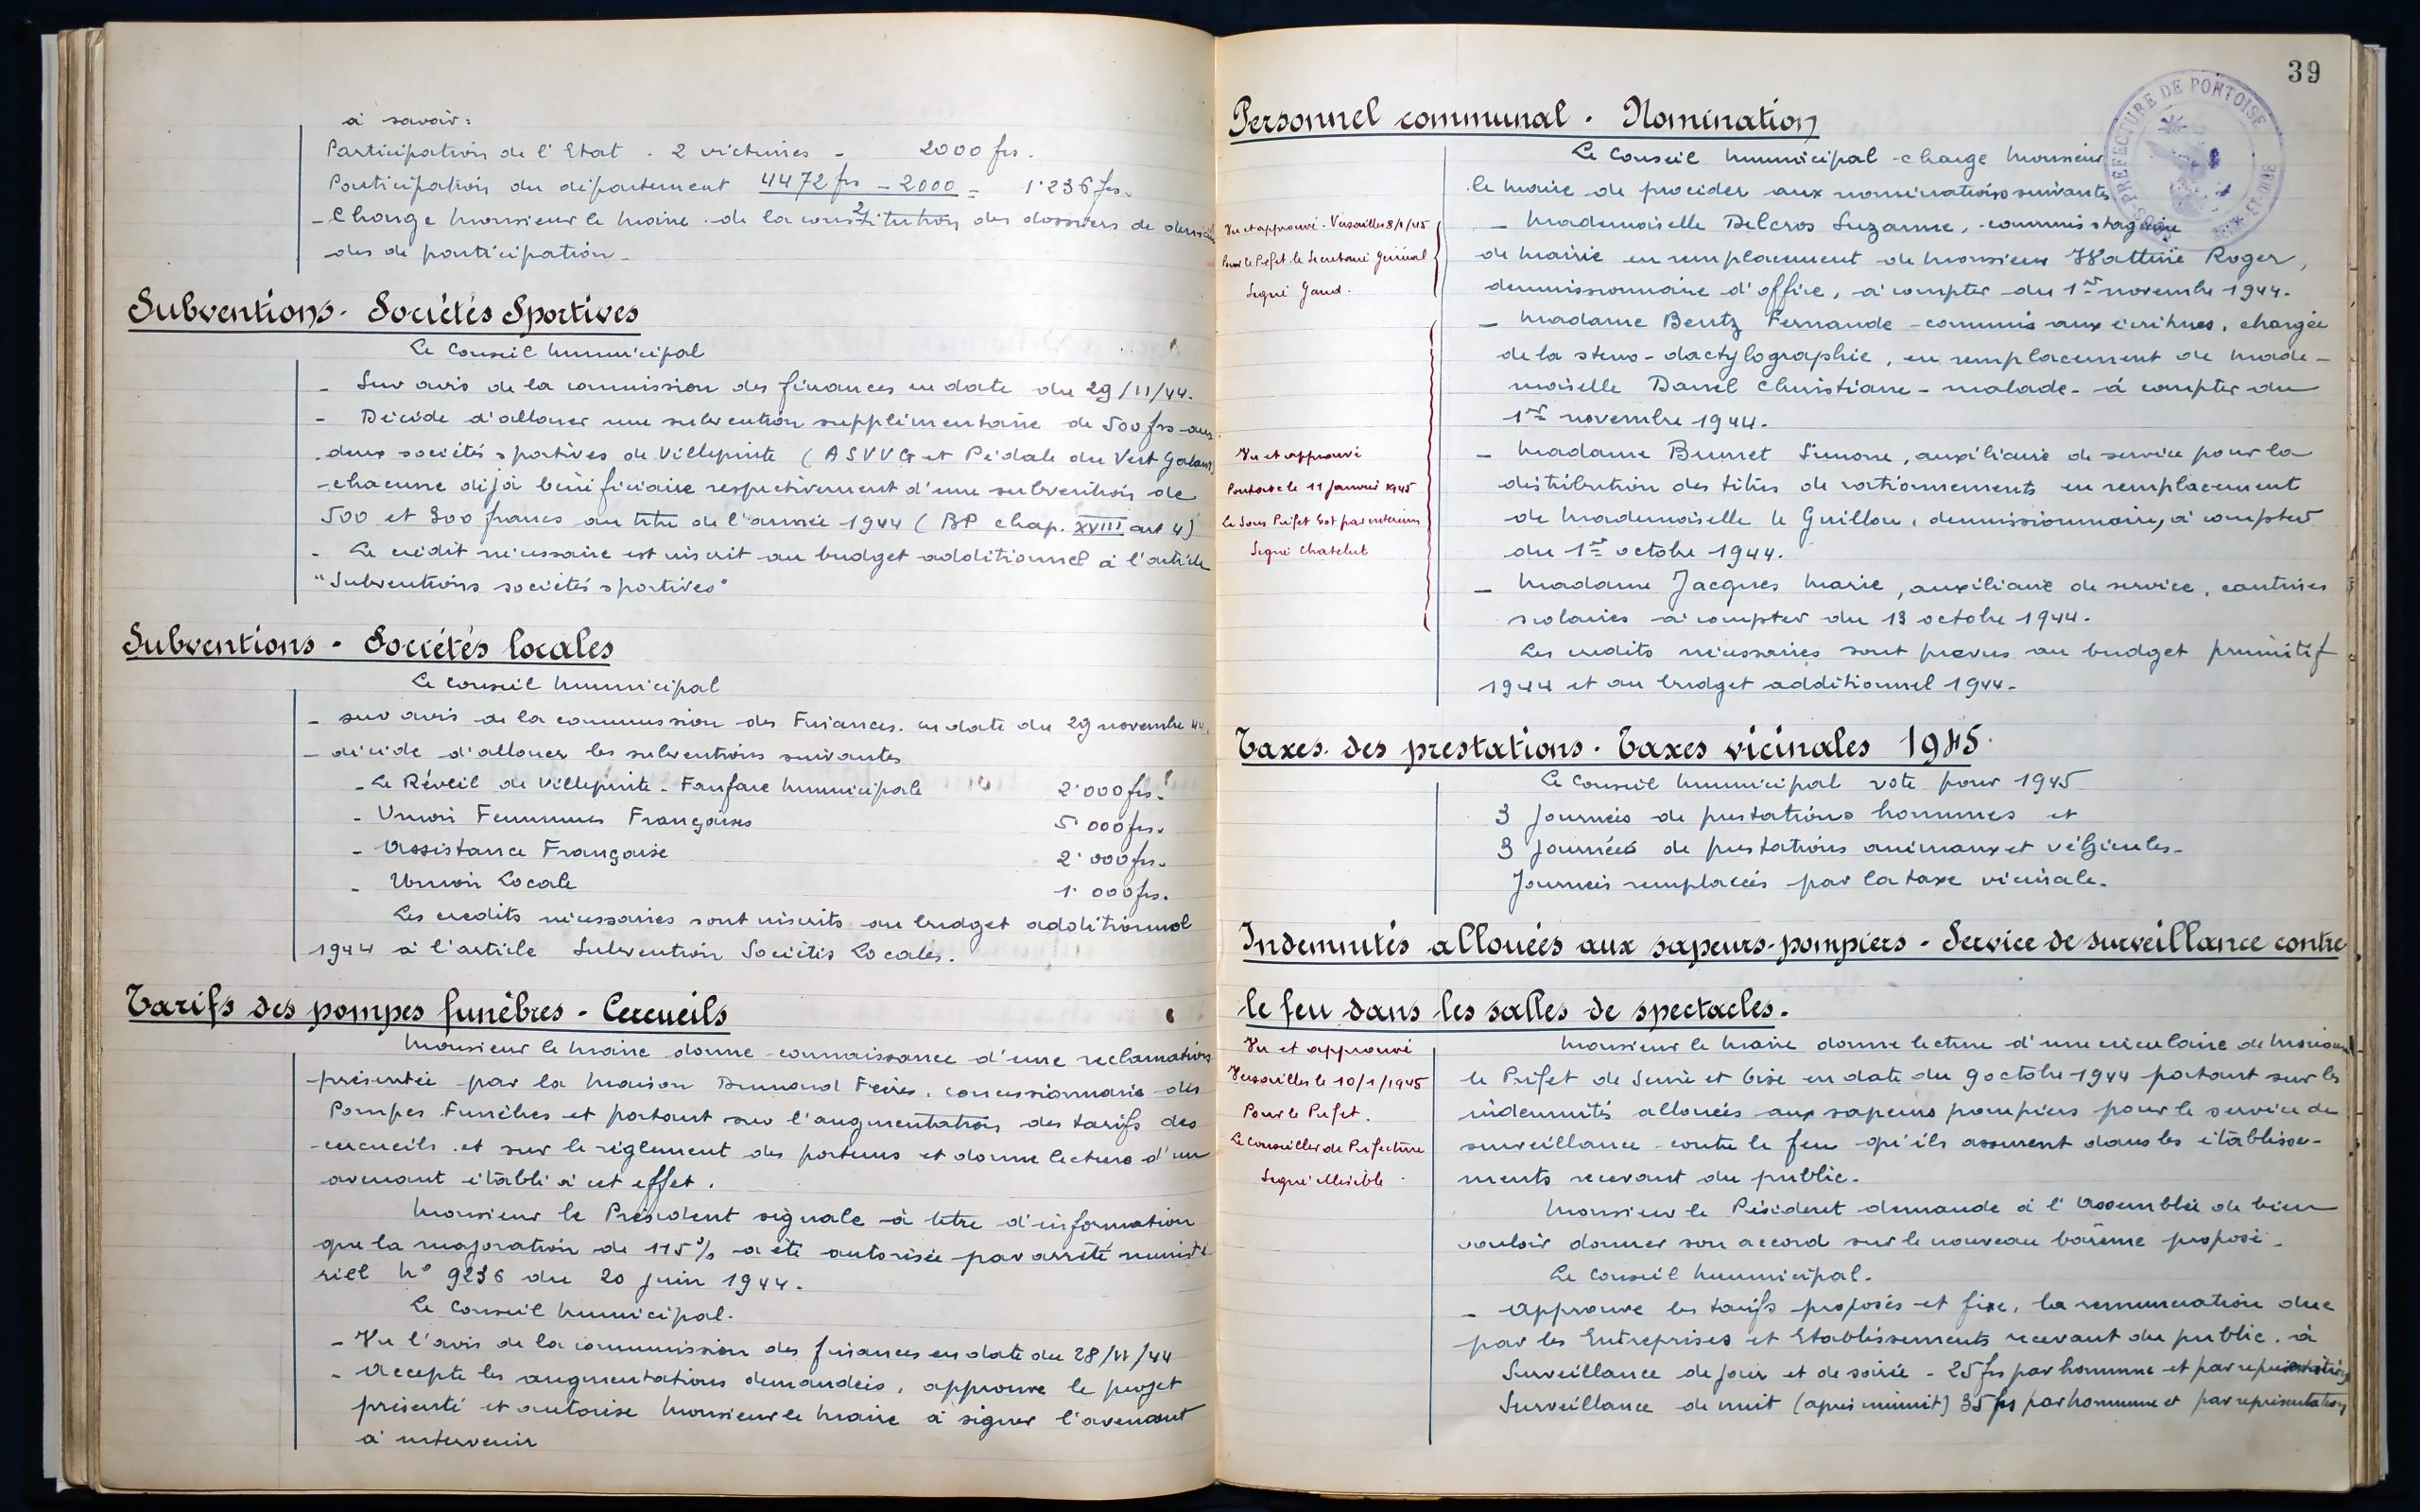 à savoir:
Participation de l'Etat . 2 victimes - 2000 frs.
Participation du département 4472 frs - 2000 = 1.236 frs.
2
- Charge Monsieur le Maire de la constitution des dossiers de deman
des de participation -
Subventions - Sociétés Sportives
Le Conseil Municipal
- Sur avis de la commission des finances en date du 29/11/44.
- Décide d'allouer une subvention supplémentaire de 500 frs aux
deux sociétés sportives de Villepinte ( ASVVG et Pédale du Vert Galant)
chacune déjà bénéficiaire respectivement d'une subvention de
500 et 300 francs au titre de l'année 1944 ( BP chap. XVIII art 4)
- Le crédit nécessaire est inscrit au budget additionnel à l'article
"Subventions sociétés sportives"
Subventions - Sociétés locales
Le Conseil Municipal
- sur avis de la commission des Finances. en date du 29 novembre 44.
- décide d'allouer les subventions suivantes
- Le Réveil de Villepinte - Fanfare Municipale 2.000 frs.
- Union Femmes Françaises 5.000 frs.
- Assistance Française 2.000 frs.
- Union Locale 1.000 frs.
Les crédits nécessaires sont inscrits au budget additionnel
1944 à l'article Subvention Sociétés Locales.
Tarifs des pompes funèbres - Cercueils
Monsieur le Maire donne connaissance d'une réclamation
présentée par la Maison Frères, concessionnaire des
Pompes Funèbres et portant sur l'augmentation des tarifs des
cercueils et sur le réglement des porteurs et donne lecture d'un
avenant établi à cet effet.
Monsieur le Président signale à titre d'information
que la majoration de 115% a été autorisée par arrêté ministé
riel N° 9236 du 20 juin 1944.
Le Conseil Municipal.
- Vu l'avis de la commission des finances en date du 28/11/44
- Accepte les augmentations demandées, approuve le projet
présenté et autorise Monsieur le Maire à signer l'avenant
à intervenir
39
SOUS-PRÉFECTURE DE PONTOISE
SEINE-ET-OISE
Personnel communal - Nomination
Le Conseil Municipal charge Monsieur
le Maire de procéder aux nominations suivantes
- Mademoiselle Delcros Suzanne, commis stagiaire
de Mairie en remplacement de Monsieur Roger,
demissionnaire d'office, à compter du 1er novembre 1944.
Vu et approuvé - Versailles 8/1/45
Pour le Préfet le Secrétaire Général
Signé Gaud.
- Madame Bentz Fernande - commis aux écritures, chargée
de la sténo-dactylographie, en remplacement de Made-
moiselle Christiane - malade - à compter du
1er novembre 1944.
- Madame Brunet Simone, auxiliaire de service pour la
distribution des titres de rationnements en remplacement
de Mademoiselle le Guillou, demissionnaire, à compter
du 1er octobre 1944.
Vu et approuvé
Pontoise le 11 Janvier 1945
Le Sous Préfet par intérim
Signé Chatelut
- Madame Jacques Marie, auxiliaire de service, cantines
scolaires à compter du 13 octobre 1944.
Les crédits nécessaires sont prévus au budget primitif
1944 et au budget additionnel 1944.
Taxes des prestations - Taxes vicinales 1945
Le Conseil Municipal vote pour 1945
3 Journées de prestations hommes et
3 Journées de prestations animaux et véhicules.
Journées remplacées par la taxe vicinale.
Indemnités allouées aux sapeurs-pompiers - Service de surveillance contre
le feu dans les salles de spectacles.
Vu et approuvé
Versailles le 10/1/1945
Pour le Préfet.
Le Conseiller de Préfecture
Signé illisible
Monsieur le Maire donne lecture d'une circulaire de Monsieur
le Préfet de Seine et Oise en date du 9 octobre 1944 portant sur les
indemnités allouées aux sapeurs pompiers pour le service de
surveillance contre le feu qu'ils assurent dans les établisse-
ments recevant du public.
Monsieur le Président demande à l'Assemblée de bien
vouloir donner son accord sur le nouveau barème proposé.
Le Conseil Municipal.
- Approuve les tarifs proposés et fixe, la remunération due
par les Entreprises et Etablissements recevant du public. à
Surveillance de jour et de soirée - 25 frs par homme et par représentation
Surveillance de nuit (après minuit) 35 frs par homme et par représentation